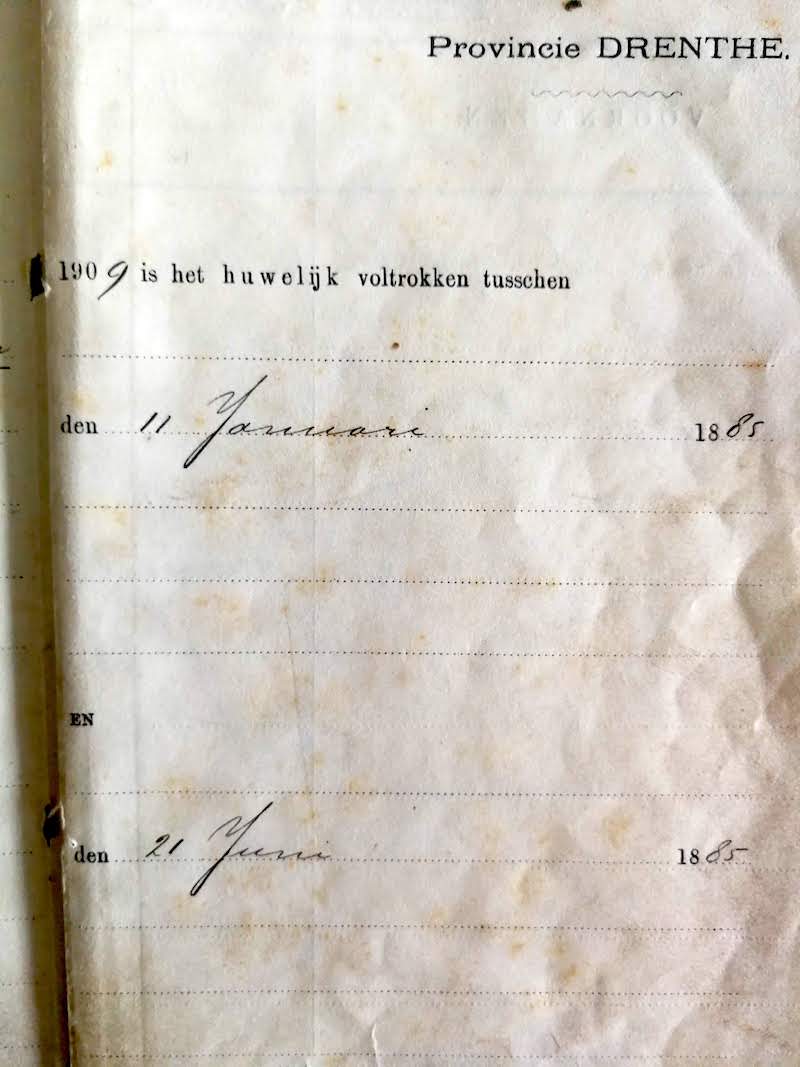 Provincie DRENTHE.
1909 is het huwelijk voltrokken tusschen
den 11 Januari 1885
EN
den 21 Juni 1885